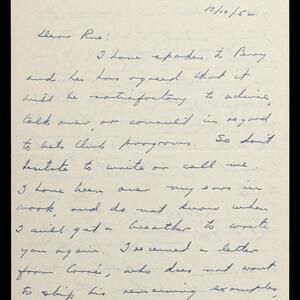 10/10/52
Dear Rue:
I have spoken to Perry
and he has agreed that it
will be satisfactory to advise,
talk over, or consult in regard
to Club programs. So don't
hesitate to write or call me.
I have been over my ears in
work, and do not know when
I will get a breather to write
you again. I received a letter
from, who does not want
to ship his remaining examples,